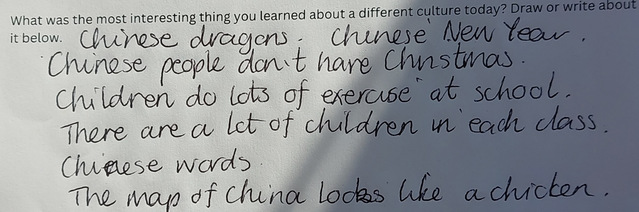 What was the most interesting thing you learned about a different culture today? Draw or write about
it below. Chinese dragons. Chinese New Year.
Chinese people don't have Christmas.
Children do lots of exercise at school.
There are a lot of children in each class.
Chinese words
The map of China looks like a chicken.